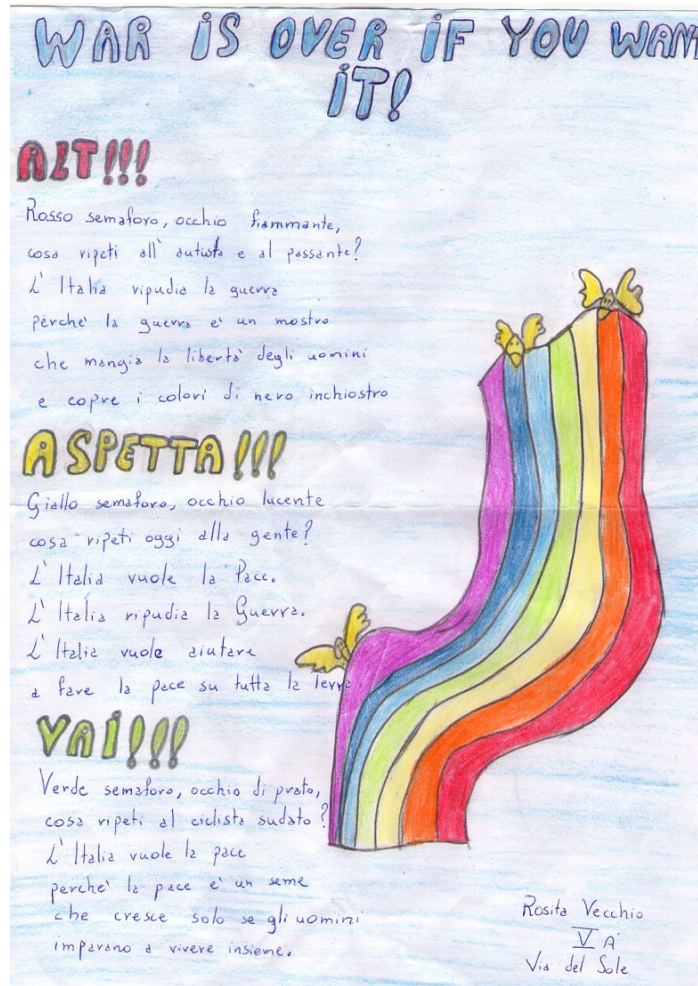 WAR IS OVER IF YOU WAN
IT!
ALT!!!
Rosso semaforo, occhio fiammante,
cosa ripeti all' autista e al passante?
L' Italia ripudia la guerra
perche' la guerra e' un mostro
che mangia la liberta' degli uomini
e copre i colori di nero inchiostro
ASPETTA!!!
Giallo semaforo, occhio lucente
cosa ripeti oggi alla gente?
L' Italia vuole la Pace.
L' Italia ripudia la Guerra.
L' Italia vuole aiutare
a fare la pace su tutta la Terra.
VAI!!!
Verde semaforo, occhio di prato,
cosa ripeti al ciclista sudato?
L' Italia vuole la pace
perche' la pace e' un seme
che cresce solo se gli uomini
imparano a vivere insieme.
Rosita Vecchio
V A
Via del Sole